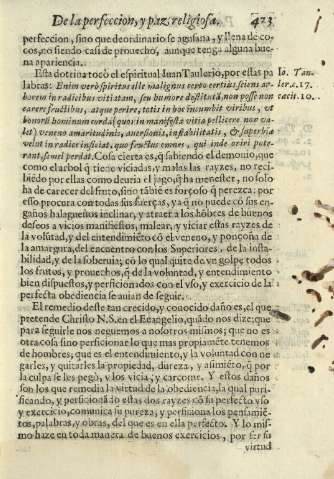 De la perfeccion, y paz religiosa. 423
perfeccion, sino que de ordinario se agusana, y llena de co-
cos, no siendo casi de prouecho, aunque tenga alguna bue-
na apariencia.
Esta dotrina tocò el espiritual Iuan Taulerio, por estas pa
labras: Enim verò spiritus ille malignus certo certius sciens ar-
borem in radicibus vitiatam, seu humore destitutã, non posse non
carere fructibus, atque perire, totis in hoc incumbit viribus, vt
bonorū hominum corda (quos in manifesta vitia pellicere non va-
let) veneno amaritudinis, auersionis, instabilitatis, & superbiæ
velut in radice inficiat, quo fructus omnes, qui inde oriri pote-
rant, simul perdat. Cosa cierta es, q̃ sabiendo el demonio, que
como el arbol q̃ tiene viciadas, y malas las rayzes, no reci-
biendo por ellas como deuria el jugo, q̃ ha menester, no solo
ha de carecer del fruto, sino tãbiè es forçoso q̃ perezca: por
esso procura con todas sus fuerças, ya q̃ no puede cõ sus en-
gaños halagueños inclinar, y atraer a los hõbres de buenos
deseos a vicios manifiestos, malear, y viciar estas rayzes de
la volũtad, y del entendimiẽto cõ el veneno, y ponçoña de
la amargura, del encuentro con los Superiores, de la insta-
bilidad, y de la soberuia; cõ lo qual quite de vn golpe todos
los frutos, y prouechos, q̃ de la voluntad, y entendimiento
bien dispuestos, y perficionados con el vso, y exercicio de la
perfecta obediencia se auian de seguir.
El remedio deste tan crecido, y conocido daño es, el que
pretende Christo N.S. en el Euangelio, quãdo nos dize; que
para seguirle nos neguemos a nosotros mismos; que no es
otra cosa sino perficionar lo que mas propiamẽte tenemos
de hombres, que es el entendimiento, y la voluntad con ne
garles, y quitarles la propiedad, dureza, y asimiẽto, q̃ por
la culpa se les pegò, y los vicia, y carcome. Y estos daños
son los que remedia la virtud de la obediencia, la qual puri-
ficando, y perficionãdo estas dos rayzes cõ su perfecto vso
y exercicio, comunica su pureza, y perficiona los pensamiẽ-
tos, palabras, y obras, del que es en ella perfecto. Y lo mis-
mo haze en toda manera de buenos exercicios, por ser su
virtud
Io. Tau-
ler. c. 17.
10.